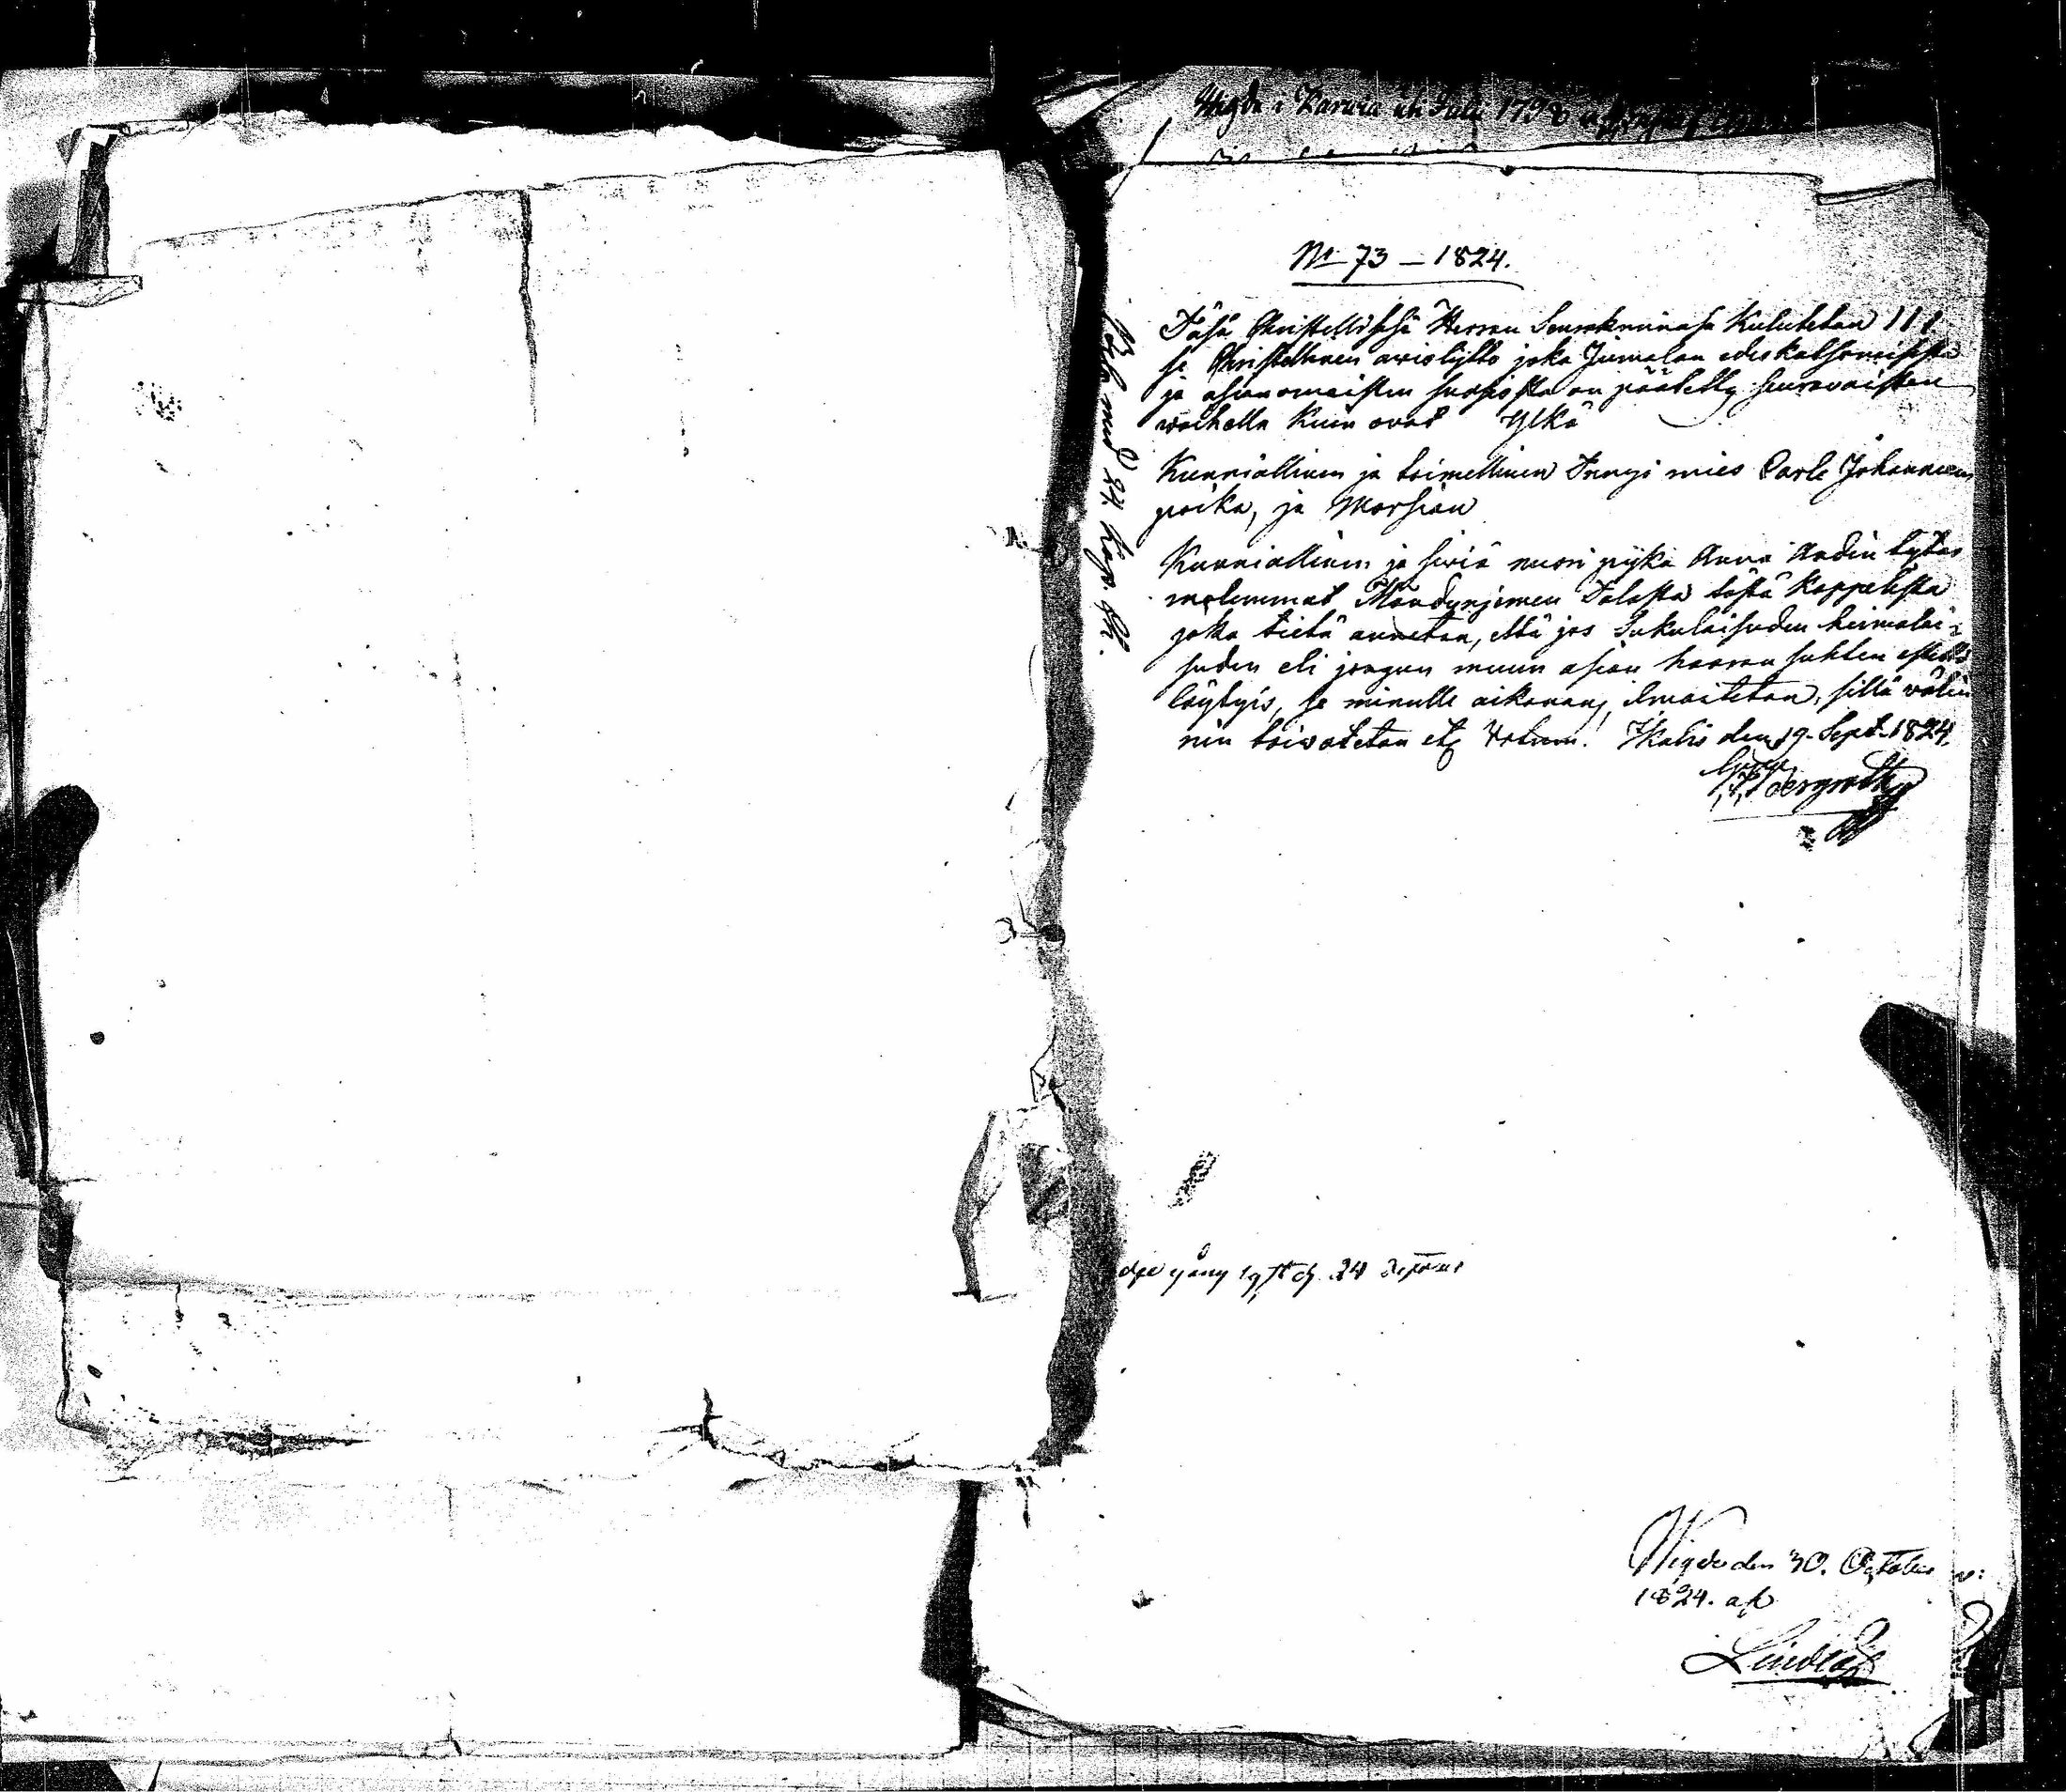 Wigde i Karvia d. Juli 1798
No 73 – 1824.
Täsä Christellisesä Herran Seurakunnasa Kulutetan III
se Christellinen aviolijtto joka Jumalan edeskatsomisesta
ja asianomaisten suosiosta on päätetty seuravaisten
waihella kuin ovat Ylkä
Kunniallinen ja toimellinen Drengi mies Carle Johannexen
poika, ja Morsian
Kunniallinen ja siviä nuori pijka Anna Andin tytär
molemmat Mändynjemen Talosta tästä Kappelista
joka tietä annetan, että jos Sukulaisuden heimolai-
suden eli jongun muun asian haaran suhten estettä
löytyis, se minulle aikanans ilmoitetan, sillä välin
nin toivotetan etc Datum. Ikalis den 19. Sept. 1824.
Bergroth
24 Kop. Sr.
gång
Wigde den 30. October
1824. af
Lindstedt